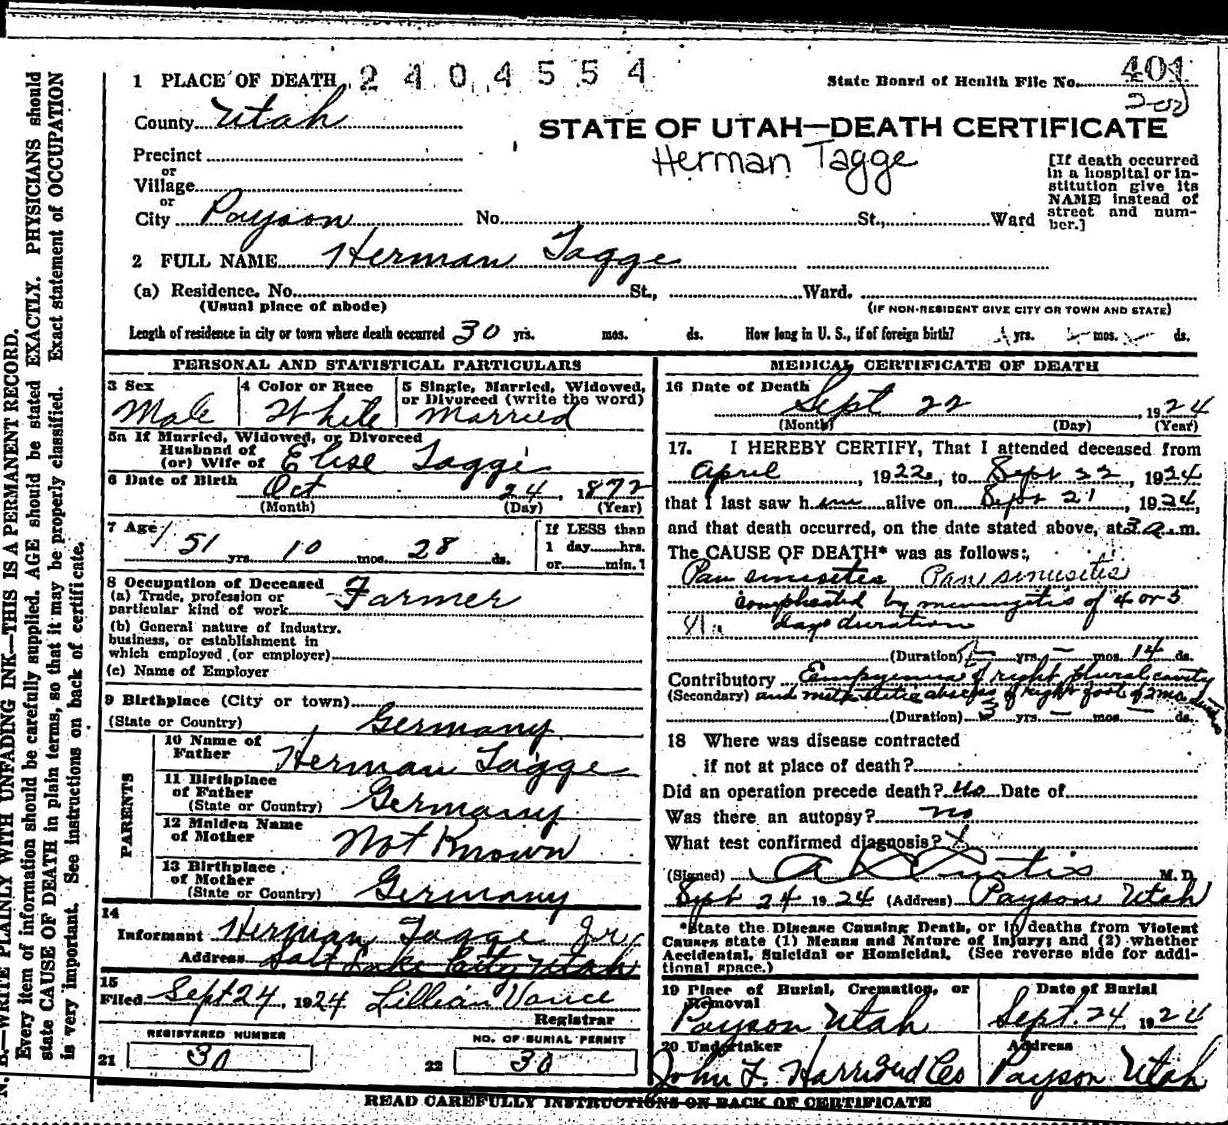 1 PLACE OF DEARTH 2 4 0 4 5 5 4
State Board of Health File No. 401
County Utah
202
STATE OF UTAH—DEATH CERTIFICATE
Herman Tagge
Precinct
or
Village
or
City Payson No. St., Ward
[If death occurred in a hospital or in-
stitution give its
NAME instead of
street and num-
ber.]
2 FULL NAME Herman Tagge
(a) Residence. No. St., Ward.
(Usual place of abode) (IF NON-RESIDENT GIVE CITY OR TOWN AND STATE)
Length of residence in city or town where death occurred 30 yrs. mos. ds. How long in U. S., if of foreign birth? yrs. mos. ds.
PERSONAL AND STATISTICAL PARTICULARS
3 Sex
Male
4 Color or Race
White
5 Single, Married, Widowed,
or Divorced (write the word)
Married
5a If Married, Widowed, or Divorced
Husband of
(or) Wife of Elise Tagge
6 Date of Birth Oct 24, 1872
(Month) (Day) (Year)
7 Age 51 yrs. 10 mos. 28 ds.
If LESS than
1 day......hrs.
or......min.?
8 Occupation of Deceased
(a) Trade, profession or
particular kind of work Farmer
(b) General nature of industry,
business, or establishment in
which employed (or employer)
(c) Name of Employer
9 Birthplace (City or town)
(State or Country) Germany
PARENTS
10 Name of
Father Herman Tagge
11 Birthplace
of Father
(State or Country) Germany
12 Maiden Name
of Mother Not Known
13 Birthplace
of Mother
(State or Country) Germany
14
Informant Herman Tagge Jr.
Address Salt Lake City Utah
15
Filed Sept 24, 1924 Lillian Vance
Registrar
REGISTERED NUMBER
21 30
NO. OF BURIAL PERMIT
22 30
MEDICAL CERTIFICATE OF DEATH
16 Date of Death
Sept 22, 1924
(Month) (Day) (Year)
17. I HEREBY CERTIFY, That I attended deceased from
April, 1922, to Sept 22, 1924
that I last saw h im alive on Sept 21, 1924,
and that death occurred, on the date stated above, at 3 a.m.
The CAUSE OF DEATH* was as follows:
Pan sinusitis Pansinusitis
complicated by meningitis of 4 or 5
days duration
(Duration) yrs. — mos. 14 ds.
Contributory Empyema of right plural cavity
(Secondary) and metastatic abscess of right foot of 2 mo
(Duration) 3 yrs. — mos. — ds.
18 Where was disease contracted
if not at place of death?
Did an operation precede death? no Date of
Was there an autopsy? no
What test confirmed diagnosis?
(Signed) A D Curtis M. D.
Sept 24 1924 (Address) Payson Utah
*State the Disease Causing Death, or in deaths from Violent
Causes state (1) Means and Nature of Injury; and (2) whether
Accidental, Suicidal or Homicidal. (See reverse side for addi-
tional space.)
19 Place of Burial, Cremation, or
Removal
Payson Utah
Date of Burial
Sept. 24, 1924
20 Undertaker
John T. Harris and Co
Address
Payson Utah
READ CAREFULLY INSTRUCTIONS ON BACK OF CERTIFICATE
N. B.—WRITE PLAINLY WITH UNFADING INK—THIS IS A PERMANENT RECORD.
Every item of information should be carefully supplied. AGE should be stated EXACTLY. PHYSICIANS should
state CAUSE OF DEATH in plain terms, so that it may be properly classified. Exact statement of OCCUPATION
is very important. See instructions on back of certificate.